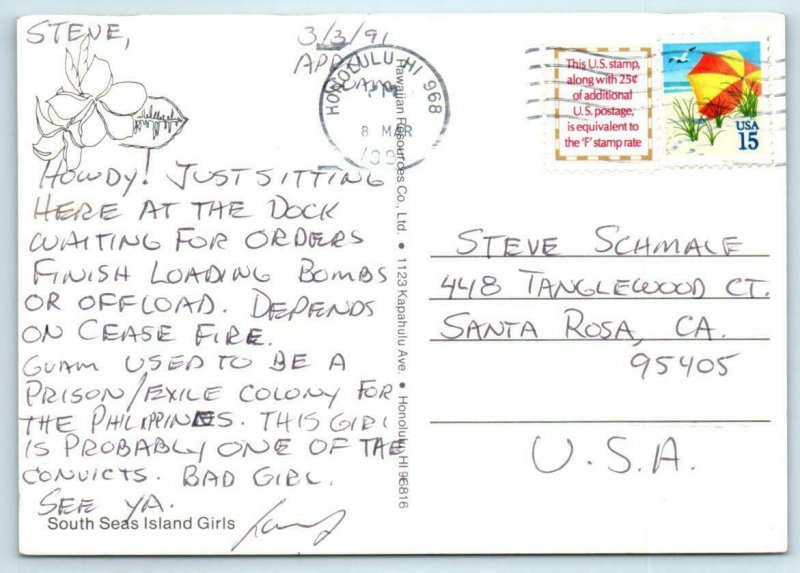 STEVE,
3/3/91
APRA
GUAM
HOWDY! JUST SITTING
HERE AT THE DOCK
WAITING FOR ORDERS
FINISH LOADING BOMBS
OR OFFLOAD. DEPENDS
ON CEASE FIRE.
GUAM USED TO BE A
PRISON/EXILE COLONY FOR
THE PHILIPPINES. THIS GIRL
IS PROBABLY ONE OF THE
CONVICTS. BAD GIRL.
SEE YA.
South Seas Island Girls
Hawaiian Resources Co., Ltd. • 1123 Kapahulu Ave. • Honolulu, HI 96816
HONOLULU, HI 968
PM
8 MAR
This U.S. stamp,
along with 25¢
of additional
U.S. postage,
is equivalent to
the 'F' stamp rate
USA
15
STEVE SCHMALE
448 TANGLEWOOD CT.
SANTA ROSA, CA.
95405
U.S.A.